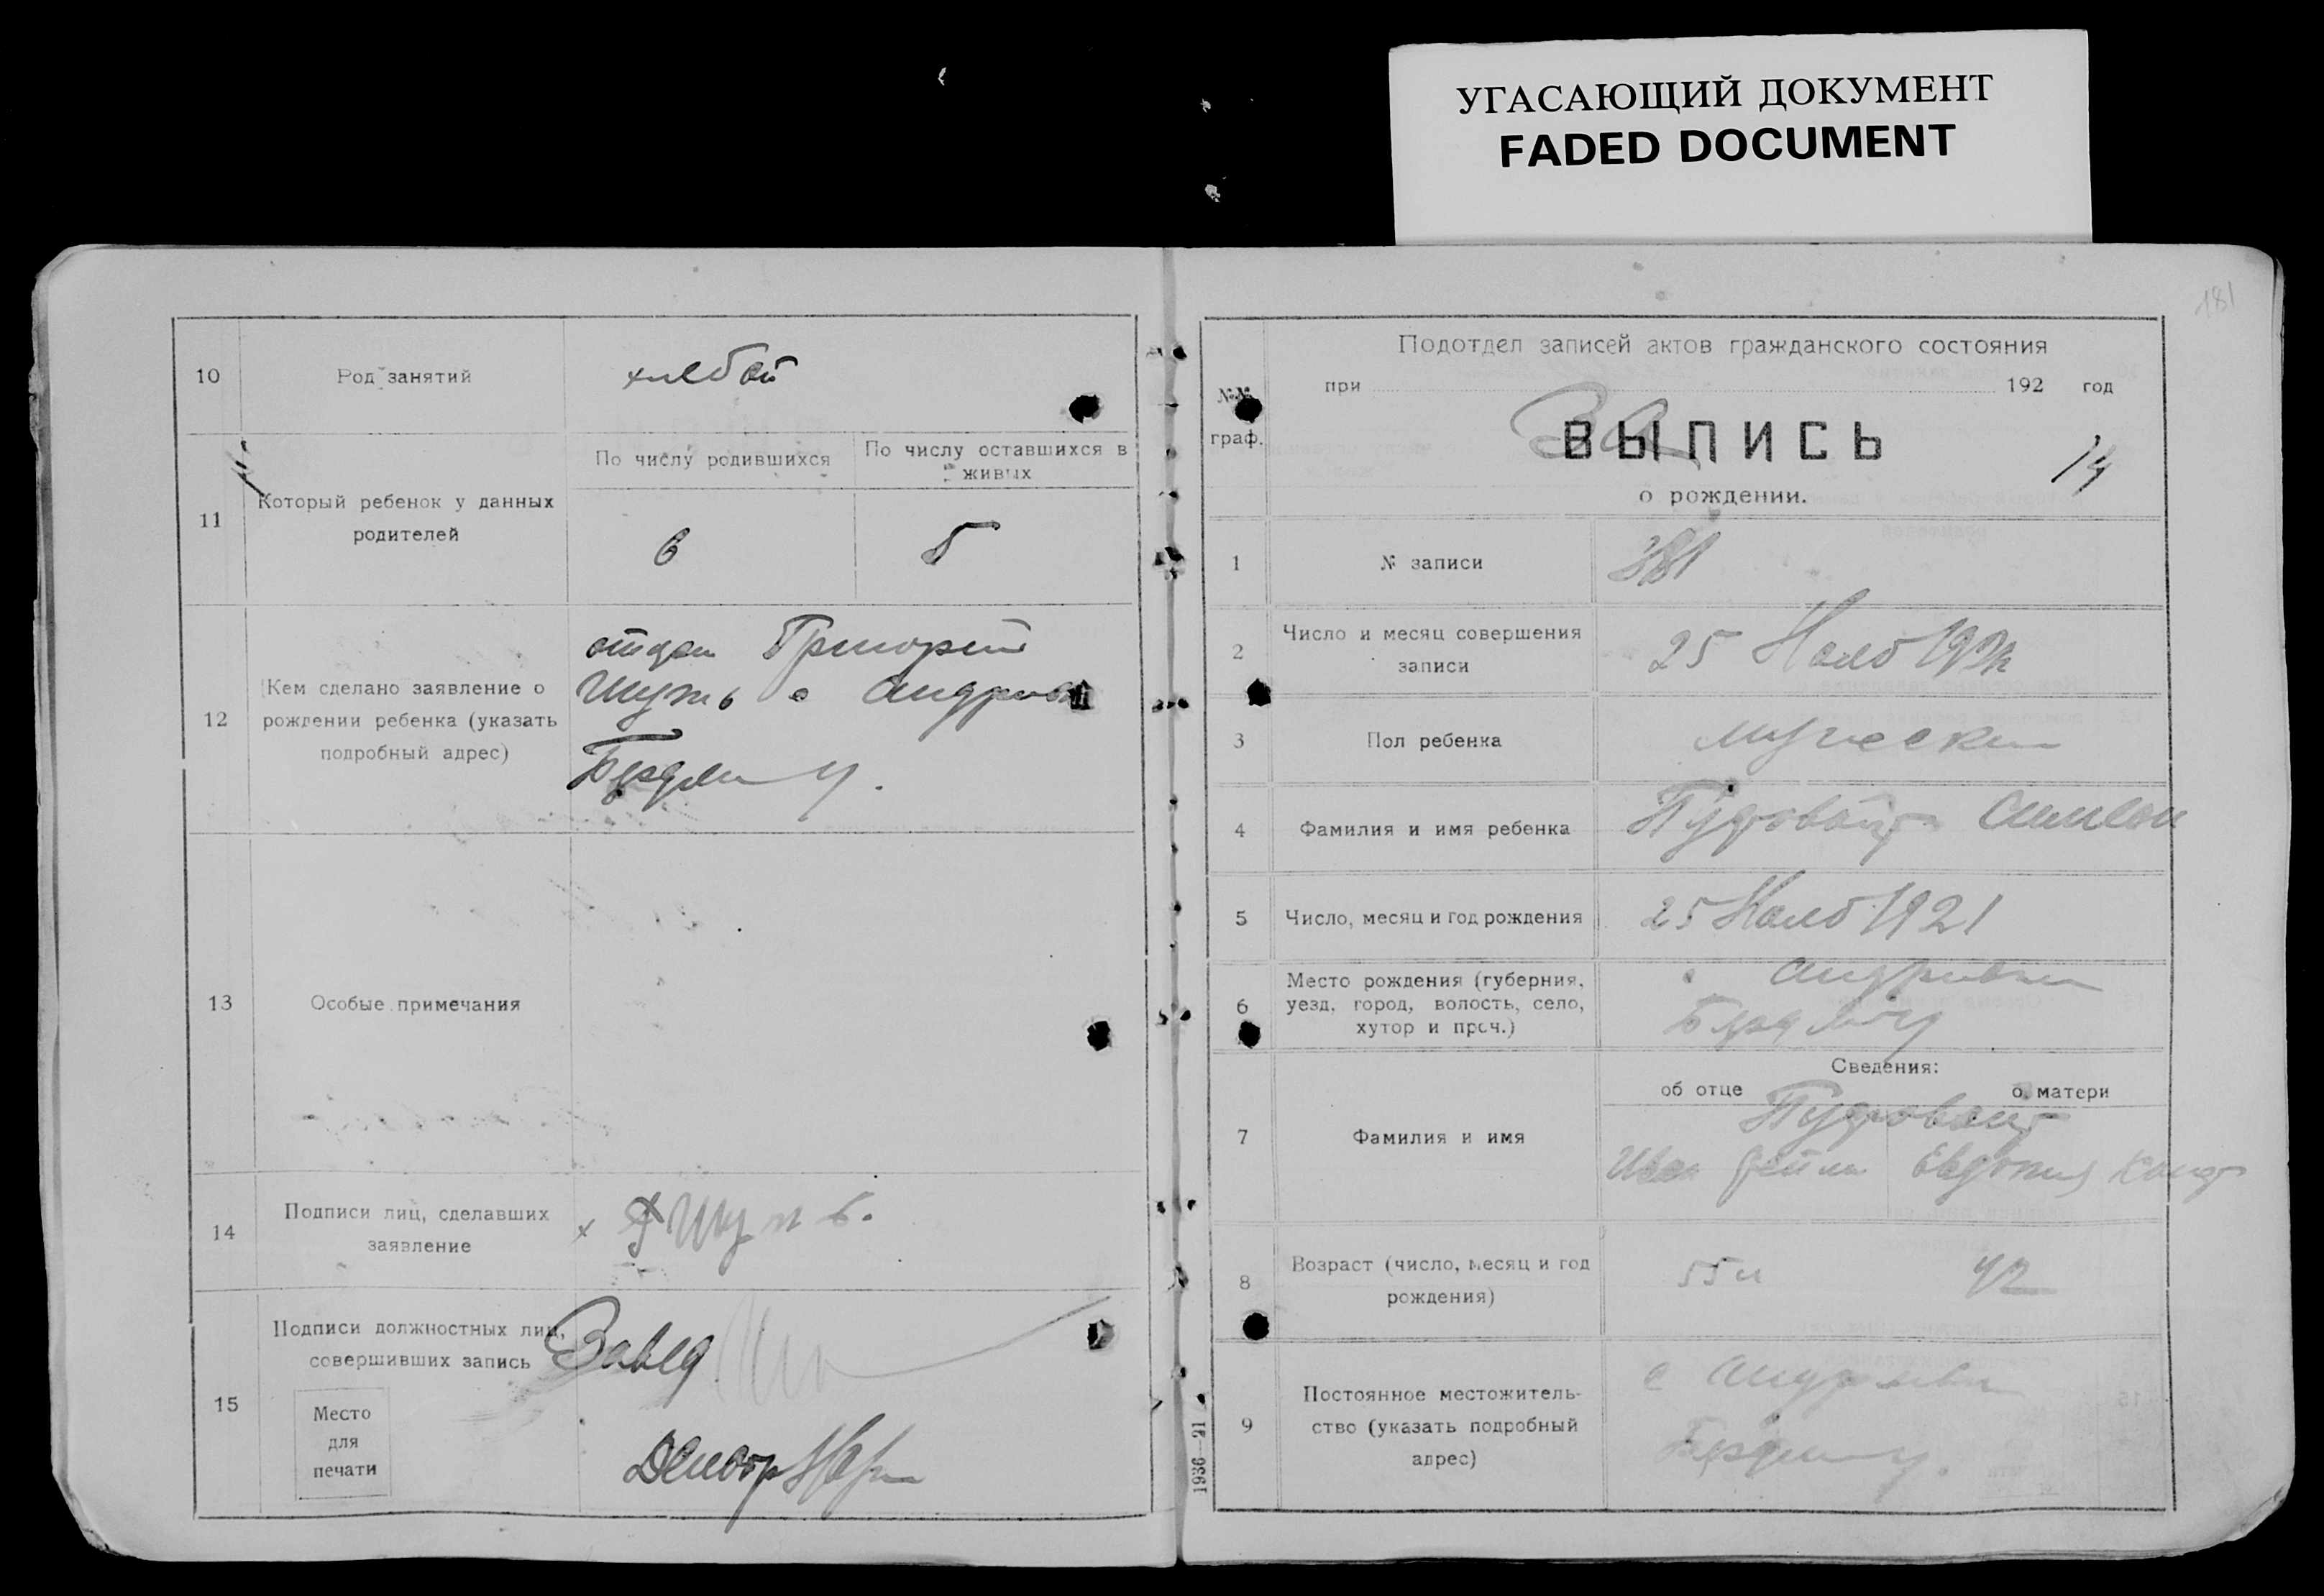 УГАСАЮЩИЙ ДОКУМЕНТ
FADED DOCUMENT
181
10
Род занятий
хлебоп
11
Который ребенок у данных
родителей
По числу родившихся
По числу оставшихся в
живых
6
5
12
Кем сделано заявление о
рождении ребенка (указать
подробный адрес)
отцом Григорий
Шуть с Андриевка
Бердян у.
13
Особые примечания
14
Подписи лиц, сделавших
заявление
Г Шуть.
15
Подписи должностных лиц,
совершивших запись
Завед
Место
для
печати
Делопр
Подотдел записей актов гражданского состояния
при 192 год
№№
граф.
ВЫПИСЬ
о рождении.
14
1
№ записи
381
2
Число и месяц совершения
записи
25 Нояб 192
3
Пол ребенка
мужеский
4
Фамилия и имя ребенка
Симеон
5
Число, месяц и год рождения
25 Нояб 1921
6
Место рождения (губерния,
уезд, город, волость, село,
хутор и проч.)
с Андриевка
Бердян у
Сведения:
об отце
о матери
7
Фамилия и имя
Иван
Евдокия
8
Возраст (число, месяц и год
рождения)
55 л
42
9
Постоянное местожитель-
ство (указать подробный
адрес)
с Андриевка
Бердян у.
1936—91